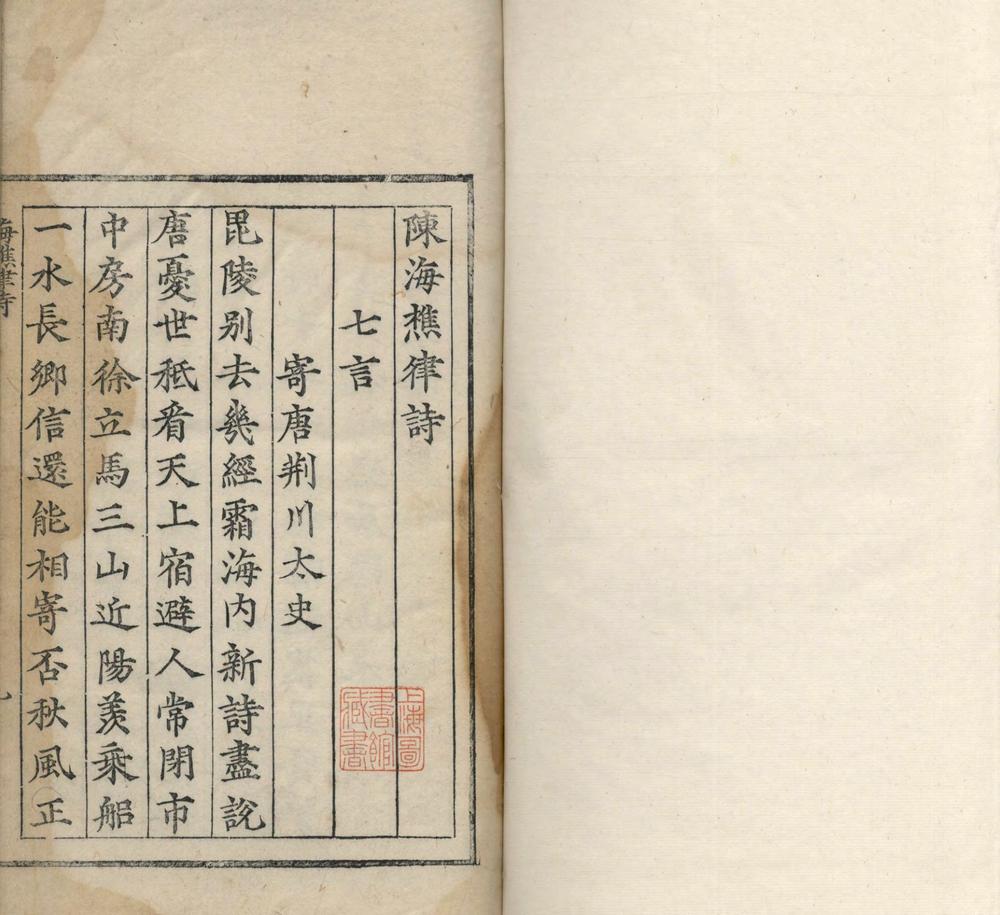 陳海樵律詩
七言
寄唐荆川太史
毘陵别去幾經霜海内新詩盡説
唐憂世秪看天上宿避人常閉市
中房南徐立馬三山近陽羨乘船
一水長鄉信還能相寄否秋風正
海樵律詩
上海圖
書館
藏書